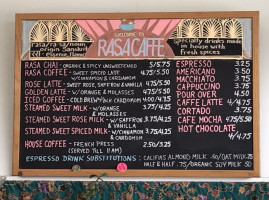 WELCOME TO
RASA CAFFE
rasa/ra·sa/noun
origin Sanskrit
Specialty drinks
made in house with
fresh spices
RASA CHAI - ORGANIC & SPICY UNSWEETENED 5/5.75
RASA COFFEE - SWEET SPICED LATTE 4.75/5.50
W/CINNAMON & CARDAMOM
ROSE LATTE - SWEET ROSE, SAFFRON & VANILLA 4.75/5.50
GOLDEN LATTE - W/ORANGE & MOLASSES 4.75/5.50
ICED COFFEE - COLD BREW W/ CARDAMOM
STEAMED SWEET MILK - W/ORANGE
& MOLASSES
STEAMED SWEET ROSE MILK - W/SAFFRON 3.75/4.75
& VANILLA
STEAMED SWEET SPICED MILK - W/CINNAMON 3.75/4.75
& CARDAMOM
HOUSE COFFEE - FRENCH PRESS 2.50/3
(SERVED TILL 11AM)
ESPRESSO 3.25
AMERICANO 3.50
MACCHIATO 3.75
CAPPUCCINO 3.75
POUR OVER 4.50
CAFFE LATTE 4/4.75
CORTADO 4
CAFE MOCHA 4.75/5.50
HOT CHOCOLATE
4/4.75
ESPRESSO DRINK SUBSTITUTIONS: CALIFIA'S ALMOND MILK .50/OAT MILK .75
HALF & HALF .75/ORGANIC SOY MILK .50